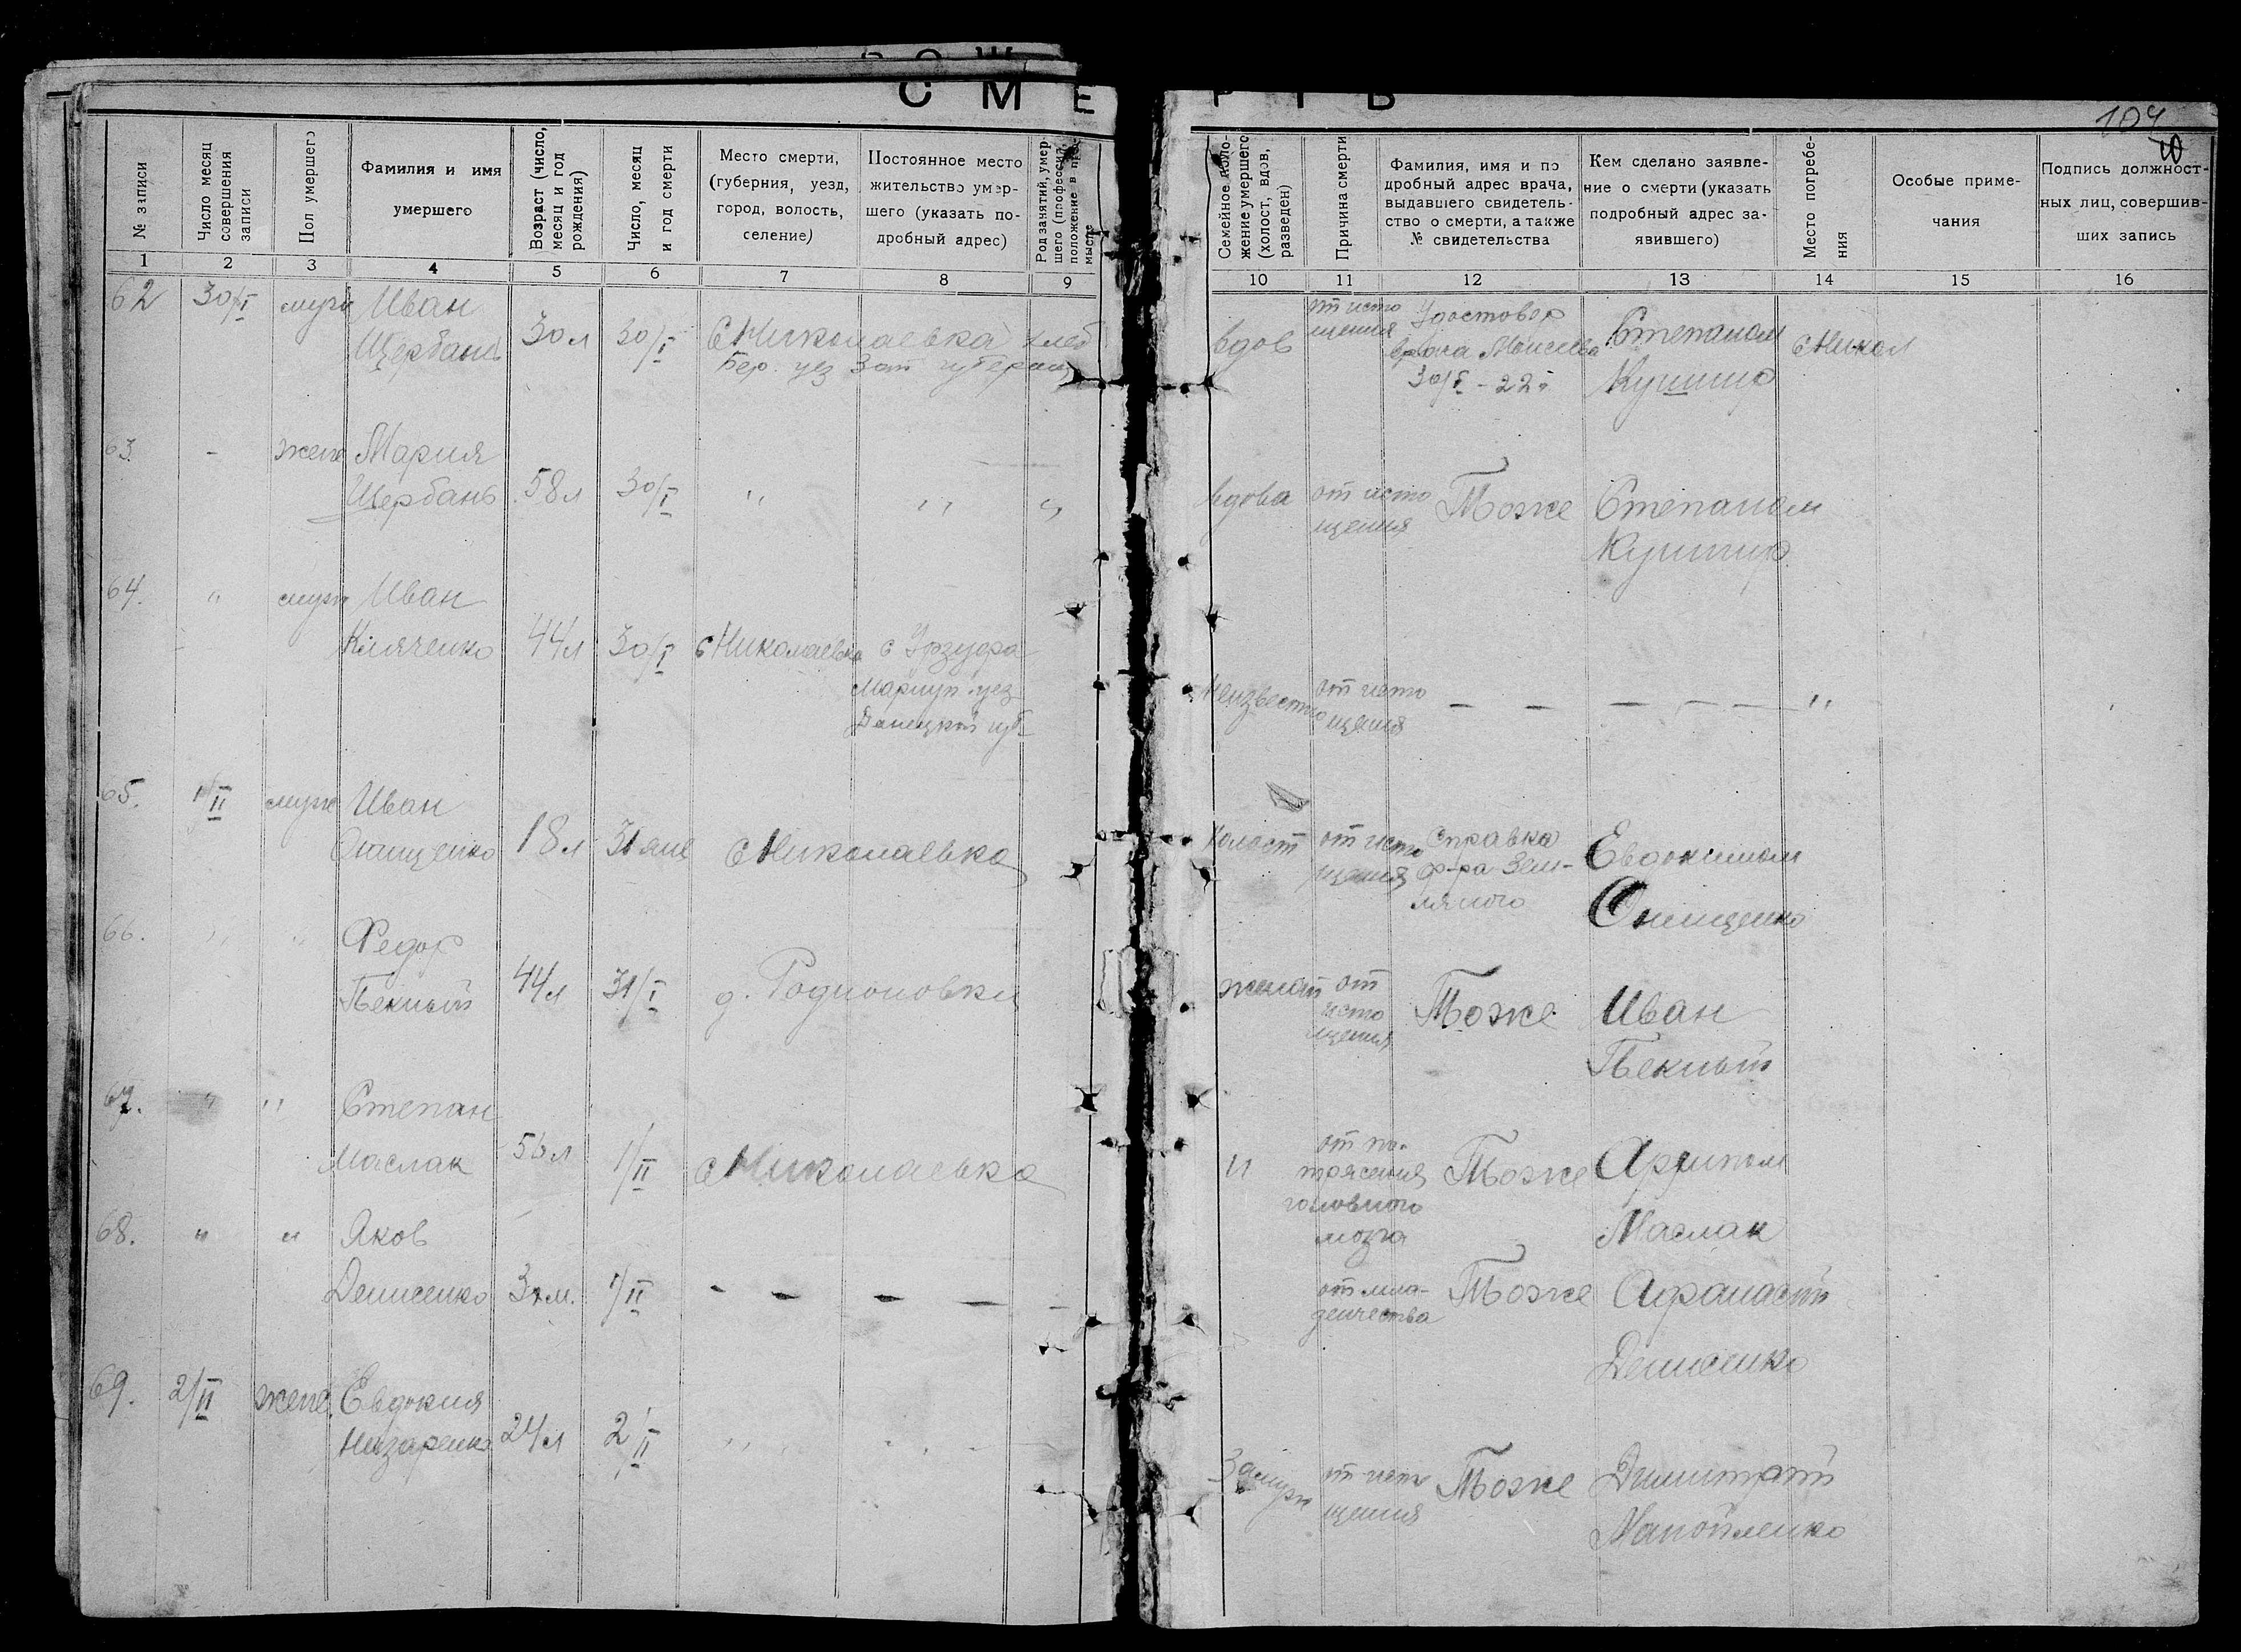 СМЕРТЬ
104
№ записи
Число месяц совершения записи
Пол умершего
Фамилия и имя
умершего
Возраст (число, месяц и год рождения)
Число, месяц и год смерти
Место смерти,
(губерния, уезд,
город, волость,
селение)
Постоянное место
жительство умер-
шего (указать по-
дробный адрес)
Род занятий, умер-
шего (професси
положение в про
мысле
Семейное поло-
жение умершего
(холост, вдов,
разведен)
Причина смерти
Фамилия, имя и по
дробный адрес врача,
выдавшего свидетель-
ство о смерти, а также
№ свидетельства
Кем сделано заявле-
ние о смерти (указать
подробный адрес за-
явившего)
Место погребе-
ния
Особые приме-
чания
Подпись должност-
ных лиц, совершив-
ших запись
1 2 3 4 5 6 7 8 9 10 11 12 13 14 15 16
62 30/I муж Иван
Щербань 30 л 30/I с Николаевка хлеб
Бер. уез Зап губернии
вдов от исто
щения Удостовер
врача Моисеева
30/I - 22 г Степаном
Кушнир с Никол
63. - жен Мария
Щербань 58 л 30/I " " "
вдова от исто
щения Тоже Степаном
Кушнир
64. " муж Иван
Кличенко 44 л 30/I с Николаевка с Урзуфа
Мариуп. уез
Донецкой губ
Неизвестно от исто
щения - - - - - "
65. 1/II муж Иван
Онищенко 18 л 31 янв с Николаевка
холост от исто
щения Справка
ф-ра Зем-
ляного Евдокимом
Онищенко
66. " " Федор
Пекный 44 л 31/I д. Родионовки
женат от
исто
щения Тоже Иван
Пекный
67. " " Степан
Маслак 56 л 1/II с Николаевка
" от по-
трясения
головного
мозга Тоже Архипом
Маслак
68. " " Яков
Денисенко 3 м. 1/II - - - - -
от мла-
денчества Тоже Афанасий
Денисенко
69. 2/II жен. Евдокия
Назаренко 24 л 2/II " "
Замуж от исто
щения Тоже Димитрий